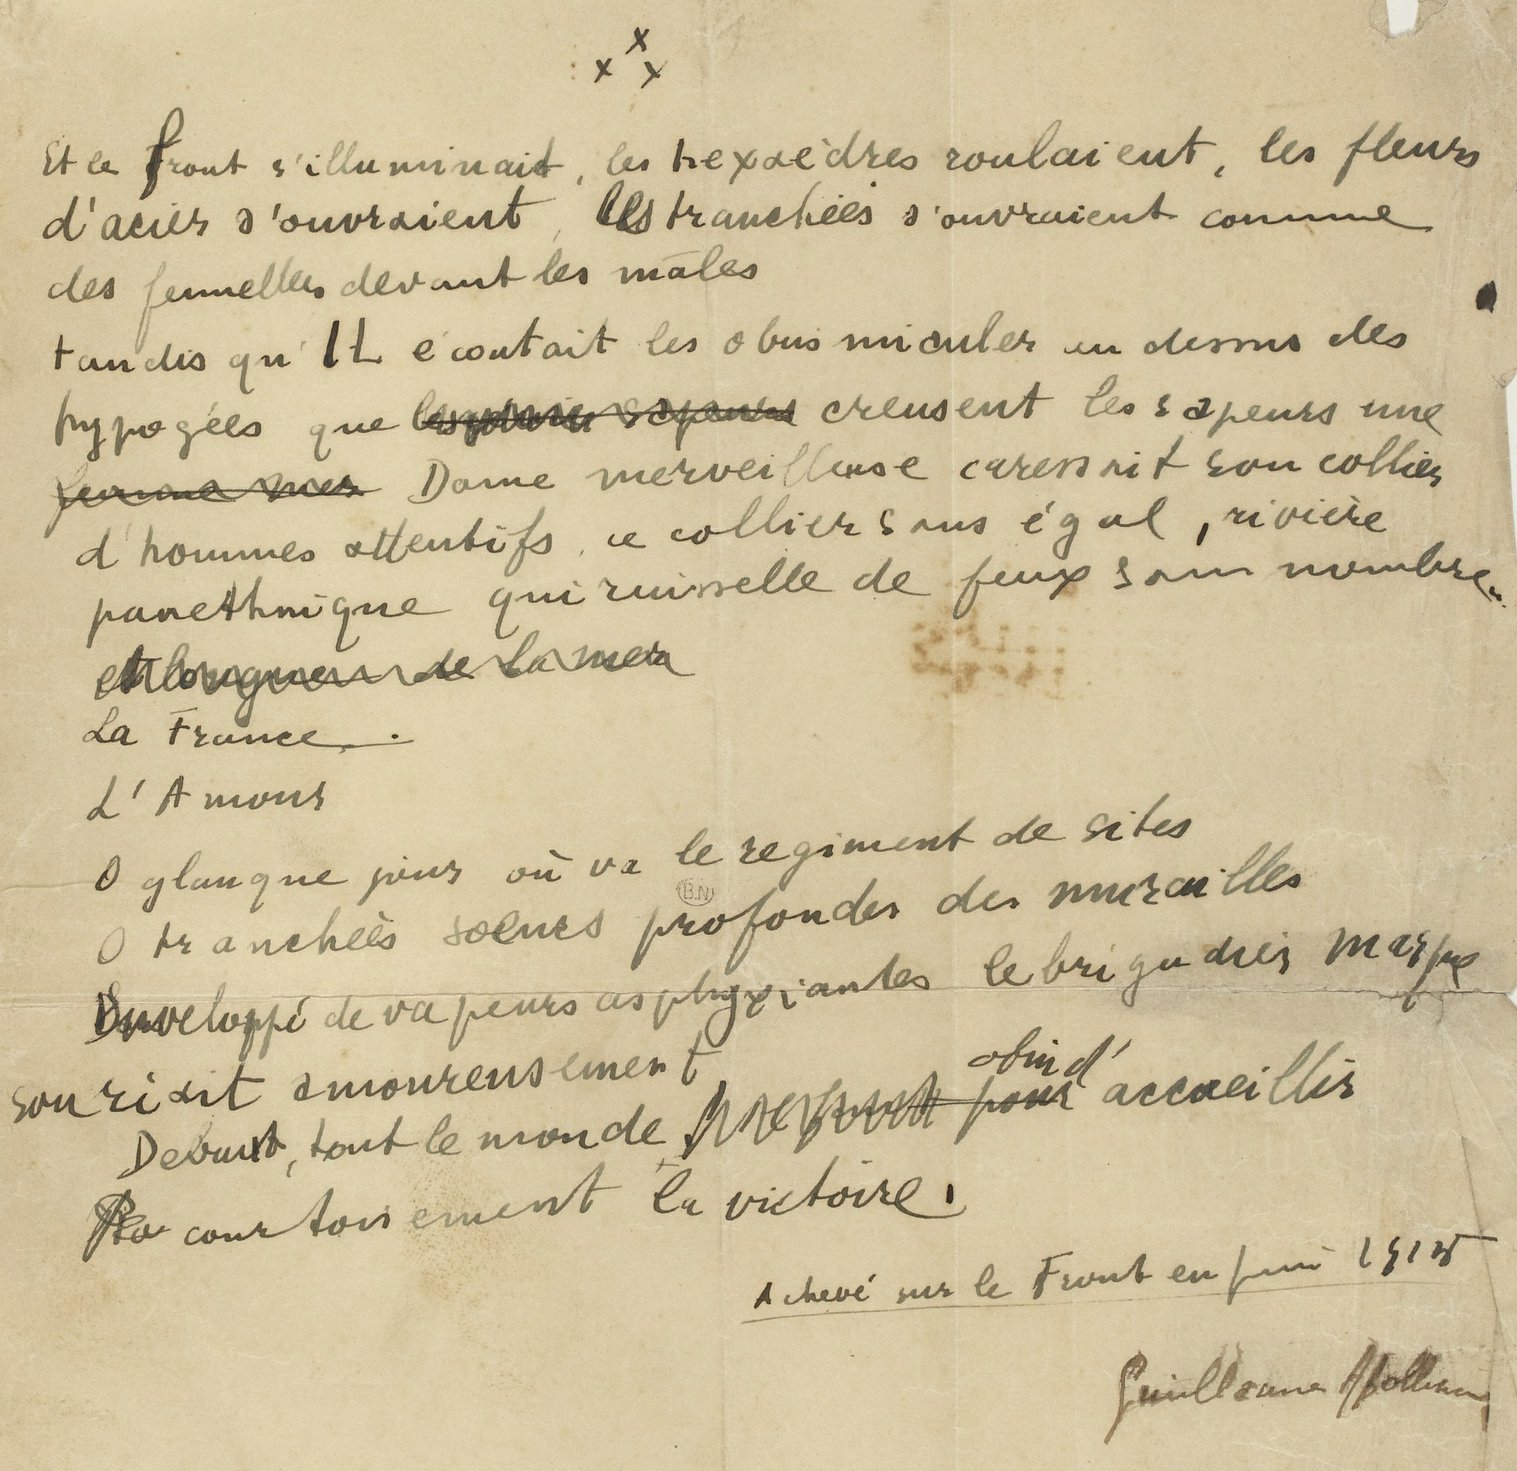 x
x x
Et le front s'illuminait, les hexaèdres roulaient, les fleurs
d'acier s'ouvraient, les tranchées s'ouvraient comme
des femelles devant les mâles
tandis qu'IL écoutait les obus miauler au dessus des
hypogées que les sapeurs creusent les sapeurs une
femme mer Dame merveilleuse caressait son collier
d'hommes attentifs, ce collier sans égal, rivière
panethnique qui ruisselle de feux sans nombre
et longueur de la mer
La France.
L'Amour
O glauque jour où va le regiment de sites
O tranchées soeurs profondes des murailles
B.N
Enveloppé de vapeurs asphyxiantes le brigadier masqué
souriait amoureusement
afin d'
Debout, tout le monde, pour accueillir
courtoisement la victoire.
Achevé sur le Front en juin 1915
Guillaume Apollinaire